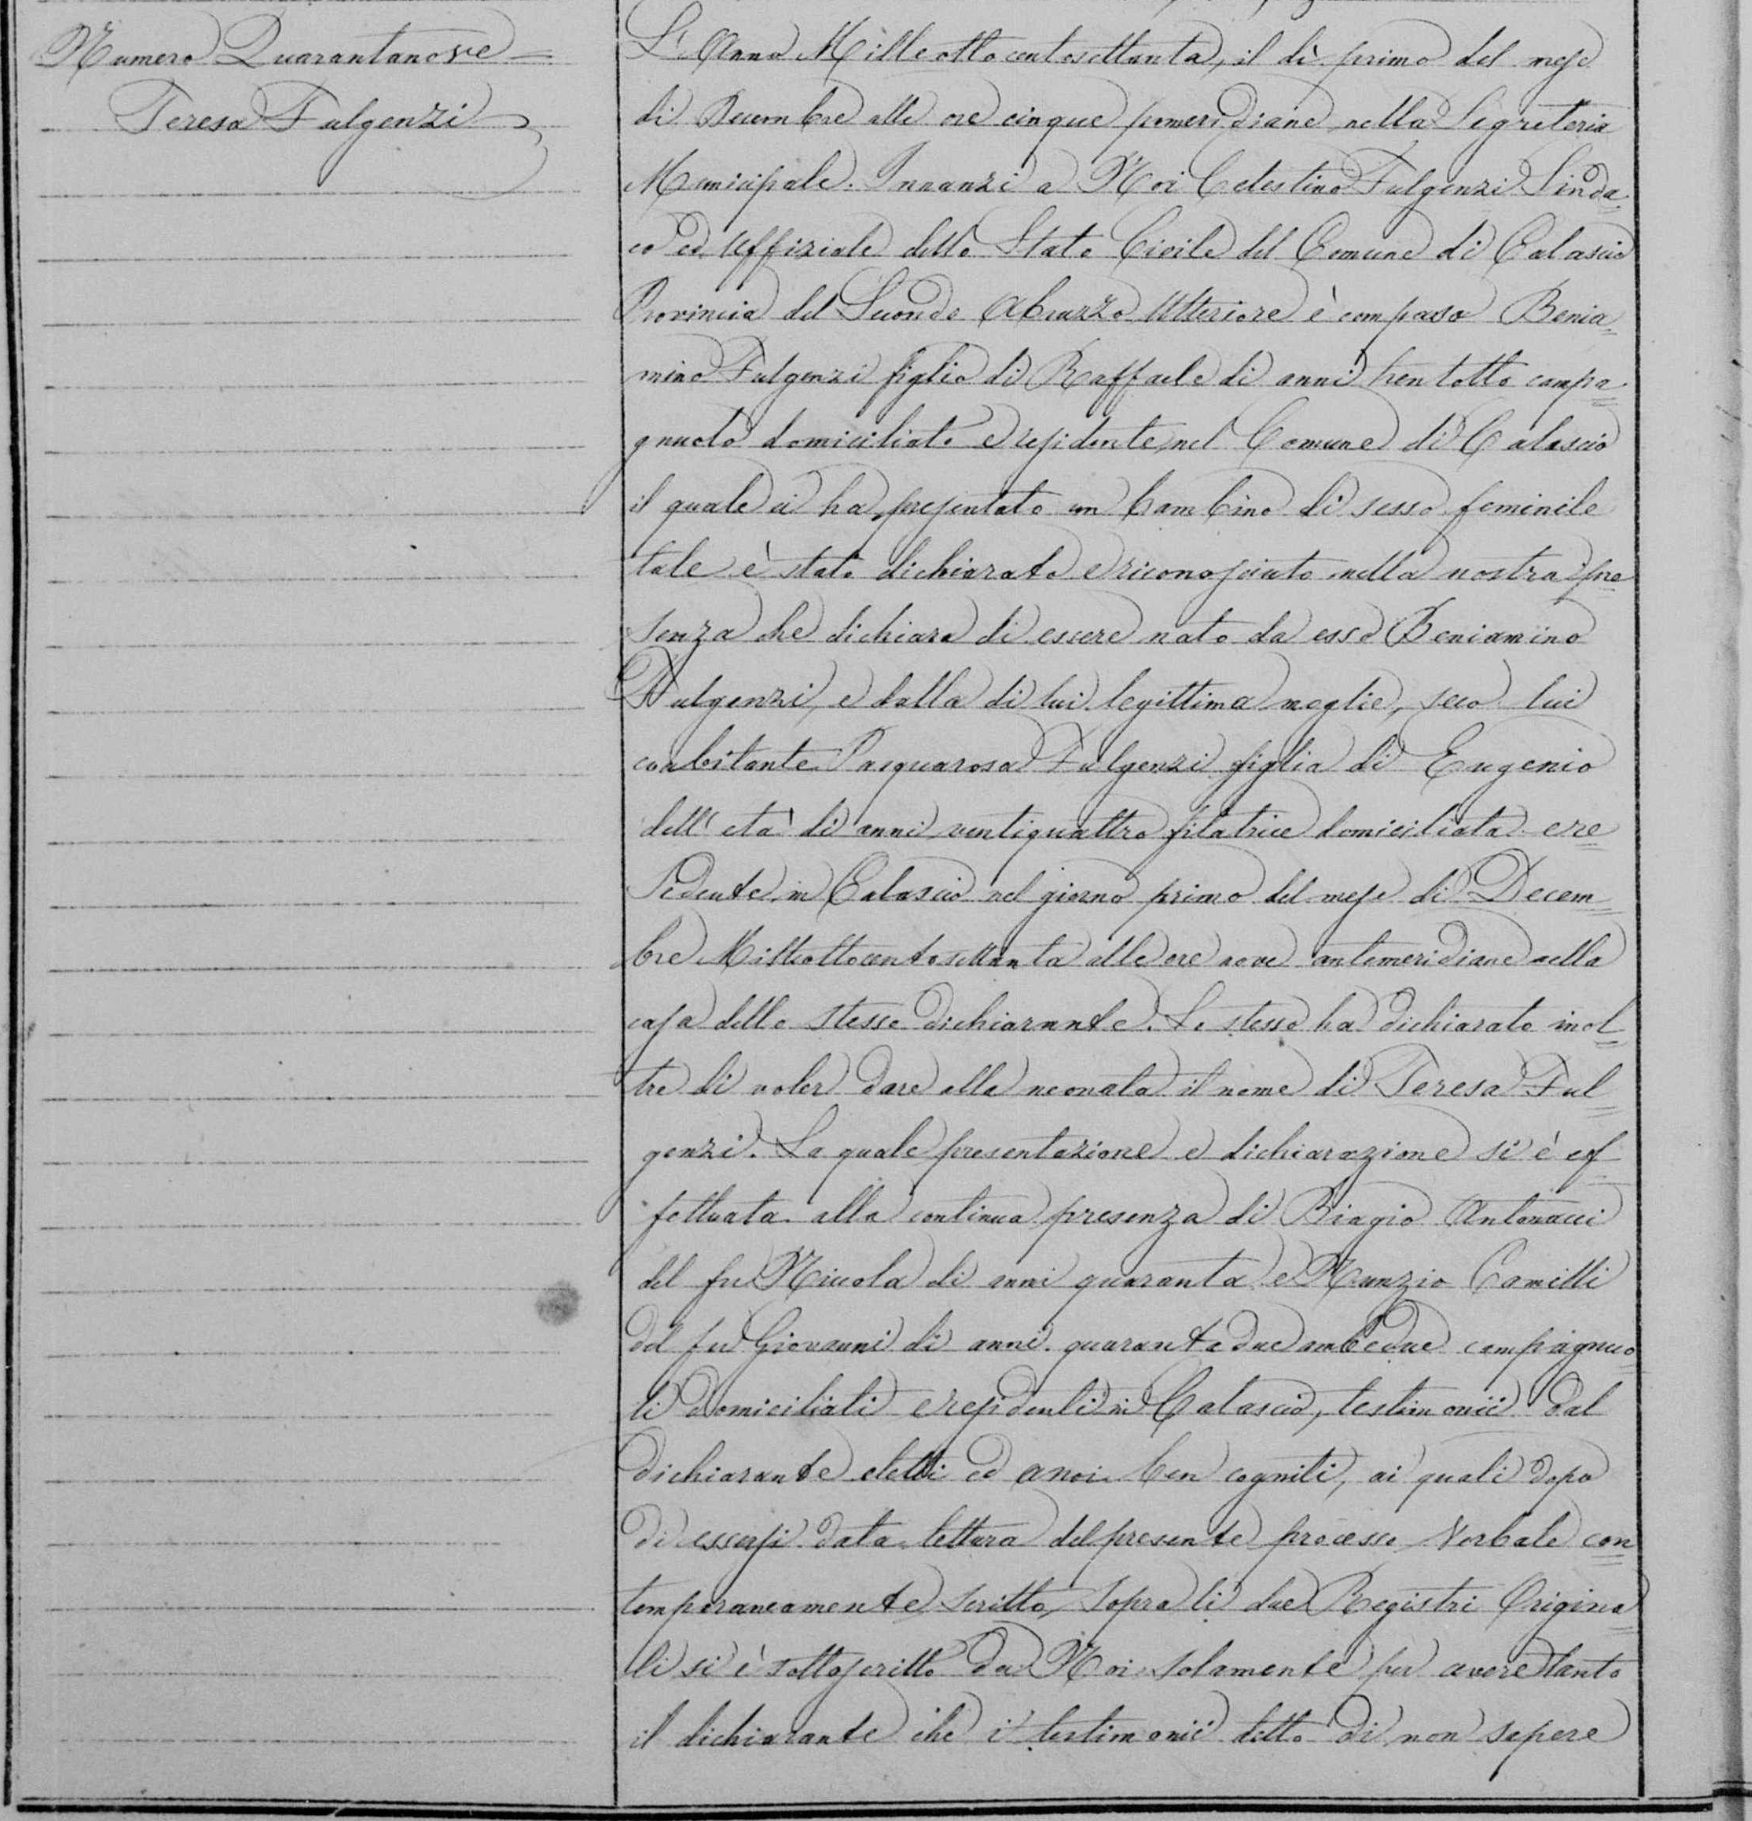 Numero Quarantanove =
Teresa Fulgenzi
L'Anno Milleottocentosettanta, il dì primo del mese
di Decembre alle ore cinque pomeridiane nella Segreteria
Municipale. Innanzi a Noi Celestino Fulgenzi Sinda=
co ed Uffiziale dello Stato Civile del Comune di Calascio
Provincia del Secondo Abruzzo Ulteriore è comparso Benia=
mino Fulgenzi figlio di Raffaele di anni trentotto campa=
gnuolo domiciliato e residente nel Comune di Calascio
il quale ci ha presentato un bambino di sesso feminile
tale è stato dichiarato e riconosciuto nella nostra pre=
senza che dichiara di essere nato da esso Beniamino
Fulgenzi, e dalla di lui legittima moglie, seco lui
coabitante Pasquarosa Fulgenzi figlia di Eugenio
dell'età di anni ventiquattro filatrice domiciliata e re=
sidente in Calascio nel giorno primo del mese di Decem=
bre Milleottocentosettanta alle ore nove antemeridiane nella
casa dello stesso dichiarante. Lo stesso ha dichiarato inol=
tre di voler dare alla neonata il nome di Teresa Ful=
genzi. La quale presentazione e dichiarazione si è ef=
fettuata alla continua presenza di Biagio Antonacci
del fu Nicola di anni quaranta e Nunzio Camilli
del fu Giovanni di anni quarantadue ambedue campagnuo=
li domiciliati e residenti in Calascio, testimonii dal
dichiarante eletti ed a noi ben cogniti, ai quali dopo
di essersi data lettura del presente processo Verbale con=
temporaneamente scritto sopra li due Registri Origina=
li si è sottoscritto da Noi solamente per avere tanto
il dichiarante che i testimonii detto di non sapere